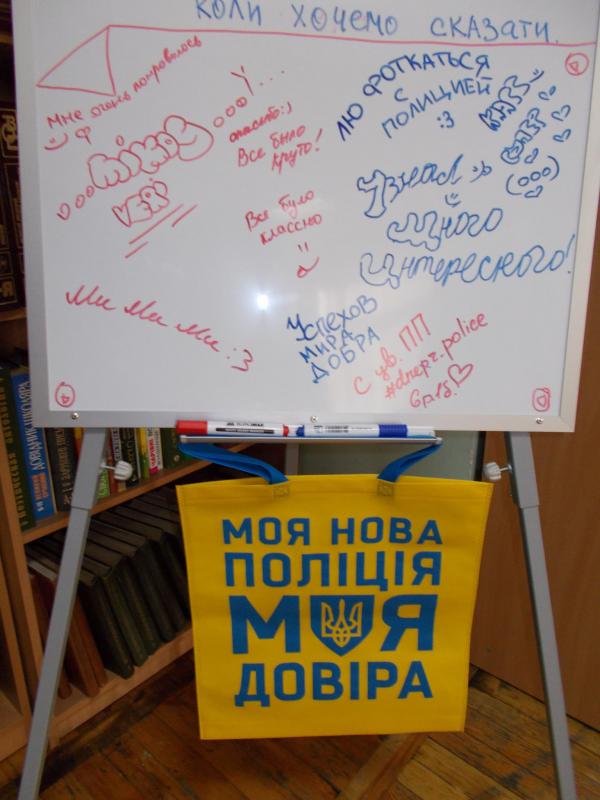 КОЛИ ХОЧЕМО СКАЗАТИ
Мне очень понравилось
спасибо:)
Все было
круто!
Все було
классно
Ми Ми Ми :3
ЛЮ ФОТКАТЬСЯ
С
ПОЛИЦИЕЙ
:3
Узнал
много
интересного!
УСПЕХОВ
МИРА
ДОБРА
С ув. ПП
#dnepr.police
МОЯ НОВА
ПОЛІЦІЯ
МОЯ
ДОВІРА